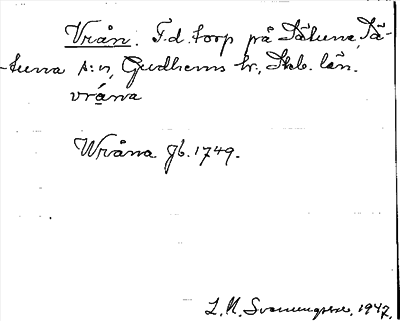 Vrån. F.d. torp på Sätuna, Sä-
-tuna s:n, Gudhems hr., Skb. län.
vrá̱na
Wråna Jb. 1749.
L. M. Svanungsson, 1947.